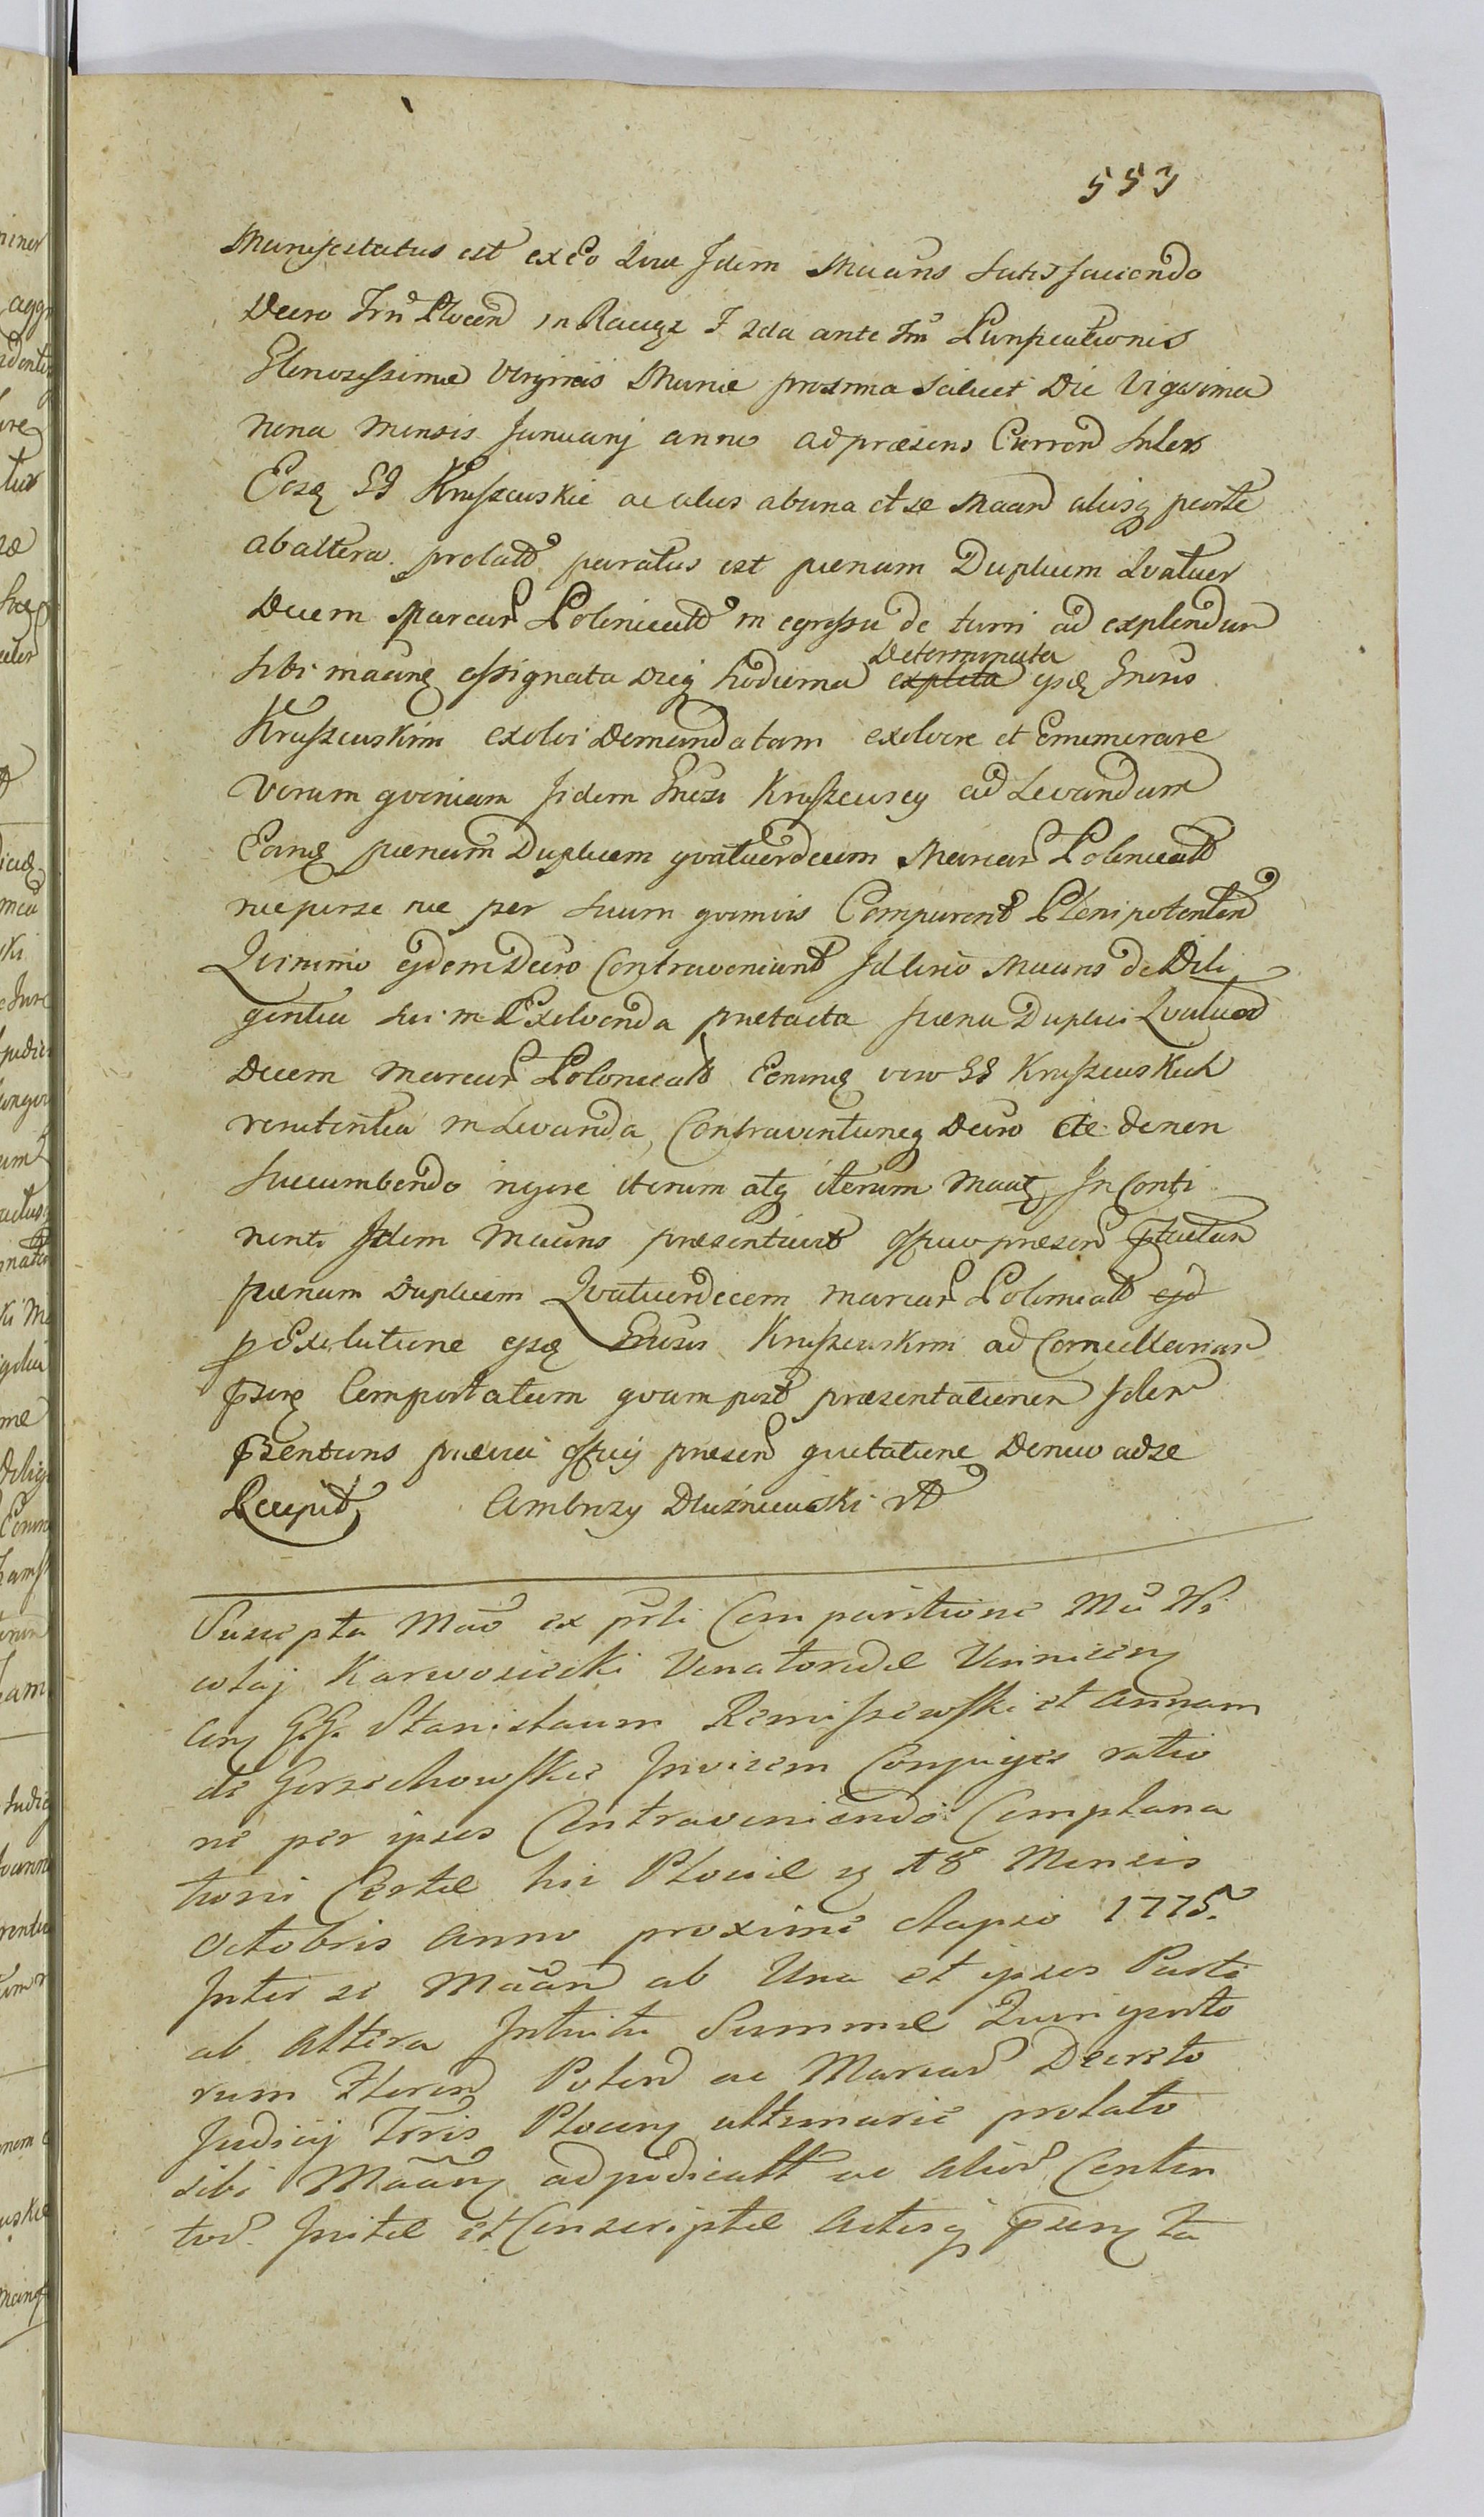 553
Manifestatus est ex Eo Quia Idem Maans Satisfaciendo
Decro Trn Plocen in Raciąz F 2da ante Fm Purificationis
Gloriosissimæ Virginis Mariæ proxima scilicet Die Vigesima
nona mensis Januarij anno ad præsens Curren Inter
Eosq GG Kruszewskie ac alios ab una et se Maan aliisq parte
ab altera prolato paratus est pœnam Duplicem Quatuor
Decem Marcar Polonicali in egressu de turri ad explendam
sibi maanq assignata Dieq hodierna expleta Determinata ipsq Gnosis
Kruszewskim exolvi Demandatam exolvere et Enumerare
Verum quoniam Iidem Gnosi Kruszewscy ad Levandum
Eamq pœnam Duplicem quatuordecem Marcar Polonicali
nec per se nec per suum quemvis Comparent Plenipotenten
Quinimo ejdem Decro Contraveniunt Id circo Maans de Dili
gentia sui in Exolvenda prætacta pœna Duplici Quatuor
Decem Marcar Polonicali Eorumq vero GG Kruszewskich
renitentia in Levanda, Contraventioneq Decro etc denen
Succumbendo iterum atq iterum Maatq In Conti
nenti Idem Maans præsentavit offcio præsen
pœnam Duplicem Quatuordecem marcar Polonicali ejd
p Exolutione ipsq Gnosis Kruszewskim ad Cancellariam
Comportatum quam post præsentationem Idem
offcij præsen quietatione Denuo ad se
Recepit Ambrozy Dłużniewski
Suscepta Mao ex Comparitione Mci Mi
kołaj Karwosiecki Venatoridæ Vinnicen
Cong GG Stanisłaum Remiszewski et Annam
de Gorzechowskie Invicem Conjuges ratio
ne per ipsos Contraveniendo Complana
tioni Certæ hic Plociæ 18 Mensis
Octobris Anno proxime elapso 1775.
Inter se Maan ab Una et ipsos Parte
ab Altera Intuitu Summæ Quingento
rum Floren Polon ac Marcar Decreto
Judicij Tris Plocen ultimarie prolato
sibi Maanq adjudicatt ac alior Conten
tor Initæ et Conscriptæ Actisq